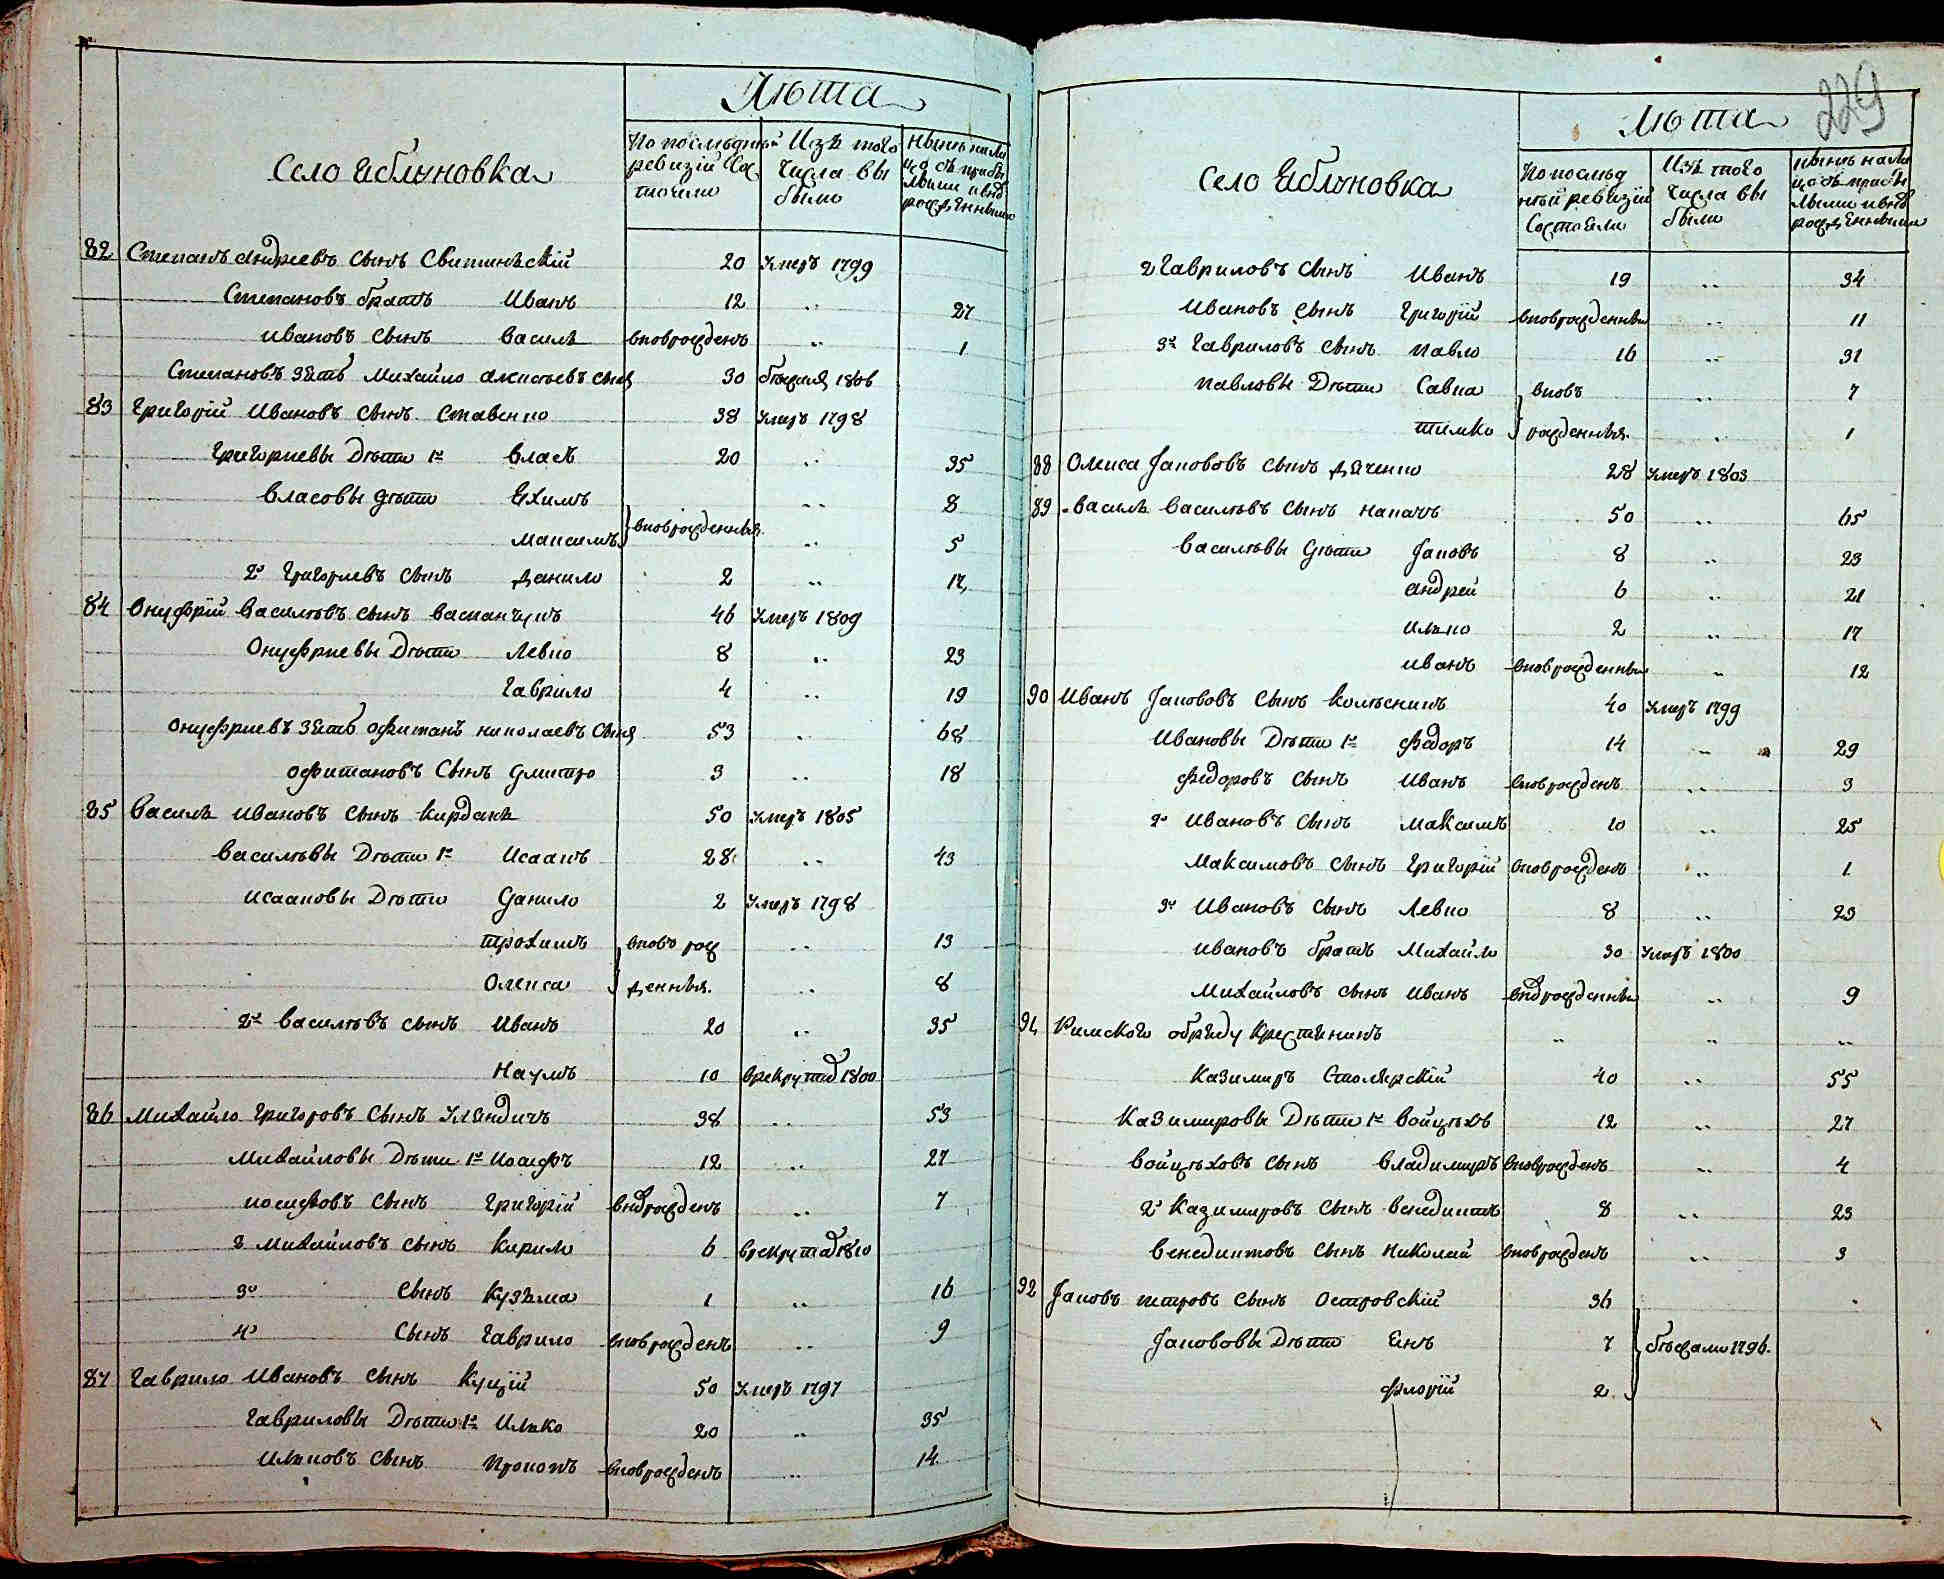 Лѣта
Село Яблуновка
По послѣдней ревизіи состояли
Изъ того числа выбыло
Нынѣ на лицо съ прибылыми и вновь рожденными
82 Степанъ Андреевъ сынъ 20 умеръ 1799
Степановъ братъ Иванъ 12 .. 27
Ивановъ сынъ Василь вновьрожденъ .. 1
Степановъ зять Михайло Алексѣевъ сынъ 30 1806
83 Григорій Ивановъ сынъ Ставенко 38 умеръ 1798
Григориевы дѣти 1й Власъ 20 .. 35
Власовы дѣти Яхимъ .. 8
Максимъ вновьрожденныя .. 5
2й Григориевъ сынъ Данило 2 .. 17
84 Онуфрій Васильевъ сынъ 46 умеръ 1809
Онуфриевы дѣти Левко 8 .. 23
Гаврило 4 .. 19
Онуфриевъ зять Николаевъ сынъ 53 .. 68
сынъ Дмитро 3 .. 18
85 Василь Ивановъ сынъ Кирдань 50 умеръ 1805
Васильевы дѣти 1й Исаакъ 28 .. 43
Исааковы дѣти Данило 2 умеръ 1798
Трохимъ вновь рож .. 13
Олекса денныя .. 8
2й Васильевъ сынъ Иванъ 20 .. 35
Наумъ 10 врекруты 1800
86 Михайло Григоровъ сынъ 38 .. 53
Михайловы дѣти 1й Иосифъ 12 .. 27
Иосифовъ сынъ Григорій вновьрожденъ .. 7
2 Михайловъ сынъ Кирило 6 врекруты 1810
3й сынъ Кузьма 1 .. 16
4й сынъ Гаврило вновьрожденъ .. 9
87 Гаврило Ивановъ сынъ Куцій 50 умеръ 1797
Гавриловы дѣти 1й Илько 20 .. 35
Ильковъ сынъ Прокопъ вновьрожденъ .. 14
229
Лѣта
Село Яблуновка
По послѣдней ревизіи состояли
Изъ того числа выбыли
Нынѣ на лицо съ прибылыми и вновь рожденными
2 Гавриловъ сынъ Иванъ 19 .. 34
Ивановъ сынъ Григорій вновьрожденны .. 11
3й Гавриловъ сынъ Павло 16 .. 31
Павловы дѣти Савка вновь .. 7
Тимко рожденныя .. 1
88 Олекса Якововъ сынъ Дяченко 28 умеръ 1803
89 Василь Васильевъ сынъ 50 .. 65
Васильевы дѣти Яковъ 8 .. 23
Андрей 6 .. 21
Илько 2 .. 17
Иванъ вновьрожденны .. 12
90 Иванъ Якововъ сынъ Колѣсникъ 40 умеръ 1799
Ивановы дѣти 1й Федоръ 14 .. 29
Федоровъ сынъ Иванъ вновьрожденъ .. 3
2й Ивановъ сынъ Максимъ 10 .. 25
Максимовъ сынъ Григорій вновьрожденъ .. 1
3й Ивановъ сынъ Левко 8 .. 23
Ивановъ братъ Михайло 30 умеръ 1800
Михайловъ сынъ Иванъ вновьрожденны .. 9
91 Римского обряду крестянинъ .. .. ..
Казимиръ Столярскій 40 .. 55
Казимировы дѣти 1й Войцѣхъ 12 .. 27
Войцѣховъ сынъ Владимиръ вновьрожденъ .. 4
2й Казимировъ сынъ Венедиктъ 8 .. 23
Венедиктовъ сынъ Николай вновьрожденъ .. 3
92 Яковъ Петровъ сынъ Островскій 36
Якововы дѣти Янъ 7 бѣжали 1796.
Флорій 2